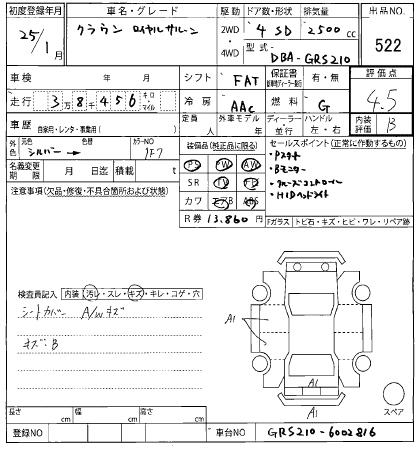 初度登録年月 車名・グレード 駆動 ドア数・形状 排気量 出品NO.
25/1月 クラウン ロイヤルサルーン 2WD 4WD 4 SD 2500cc 522
型式 DBA-GRS210
車検 年 月 シフト FAT 保証書 有・無 評価点
走行 3万8千456 キロ・マイル 冷房 AAC 燃料 G 4.5
車歴 自家用・レンタ・事業用( ) 定員 人 外車モデル 年 ディーラー・並行 ハンドル 左・右 内装評価 B
外色 元色 シルバー → 色替 カラーNO 1F7 装備品(純正品に限る) セールスポイント(正常に作動するもの)
名義変更期限 月 日 積載 t PS PW AW
・Pスタート
・Bモニター
注意事項(欠品・修復・不具合箇所および状態) SR TV ナビ
・クルーズコントロール
カワ エアB ABS
・HIDヘッドライト
R券 13,860円
Fガラス トビ石・キズ・ヒビ・ワレ・リペア跡
検査員記入 内装 汚レ・スレ・キズ・キレ・コゲ・穴
シートカバー A/Wキズ
キズ:B
A1
A1
A1
スペア
長さ cm 幅 cm 高さ cm
登録NO 車台NO GRS210-6002816